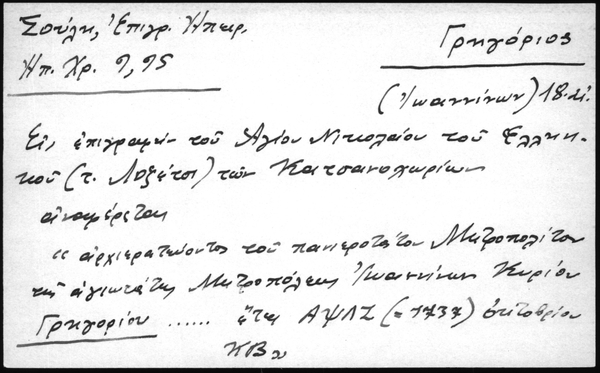 Σούλη, Ἐπιγρ. Ἠπειρ.
Ηπ. Χρ. 9, 95
Γρηγόριος
(Ἰωαννίνων) 18. αἰ.
Εἰς ἐπιγραφὴν τοῦ Ἁγίου Νικολαίου τοῦ Ἑλληνι-
κοῦ (τ. Λοζέτσι) τῶν Κατσανοχωρίων
ἀναφέρεται
"ἀρχιερατεύοντος τοῦ πανιεροτάτου Μητροπολίτου
τῆς ἁγιωτάτης Μητροπόλεως Ἰωαννίνων Κυρίου
Γρηγορίου ...... ἔτει ΑΨΛΖ (= 1737) ὀκτωβρίου
ΚΒ"